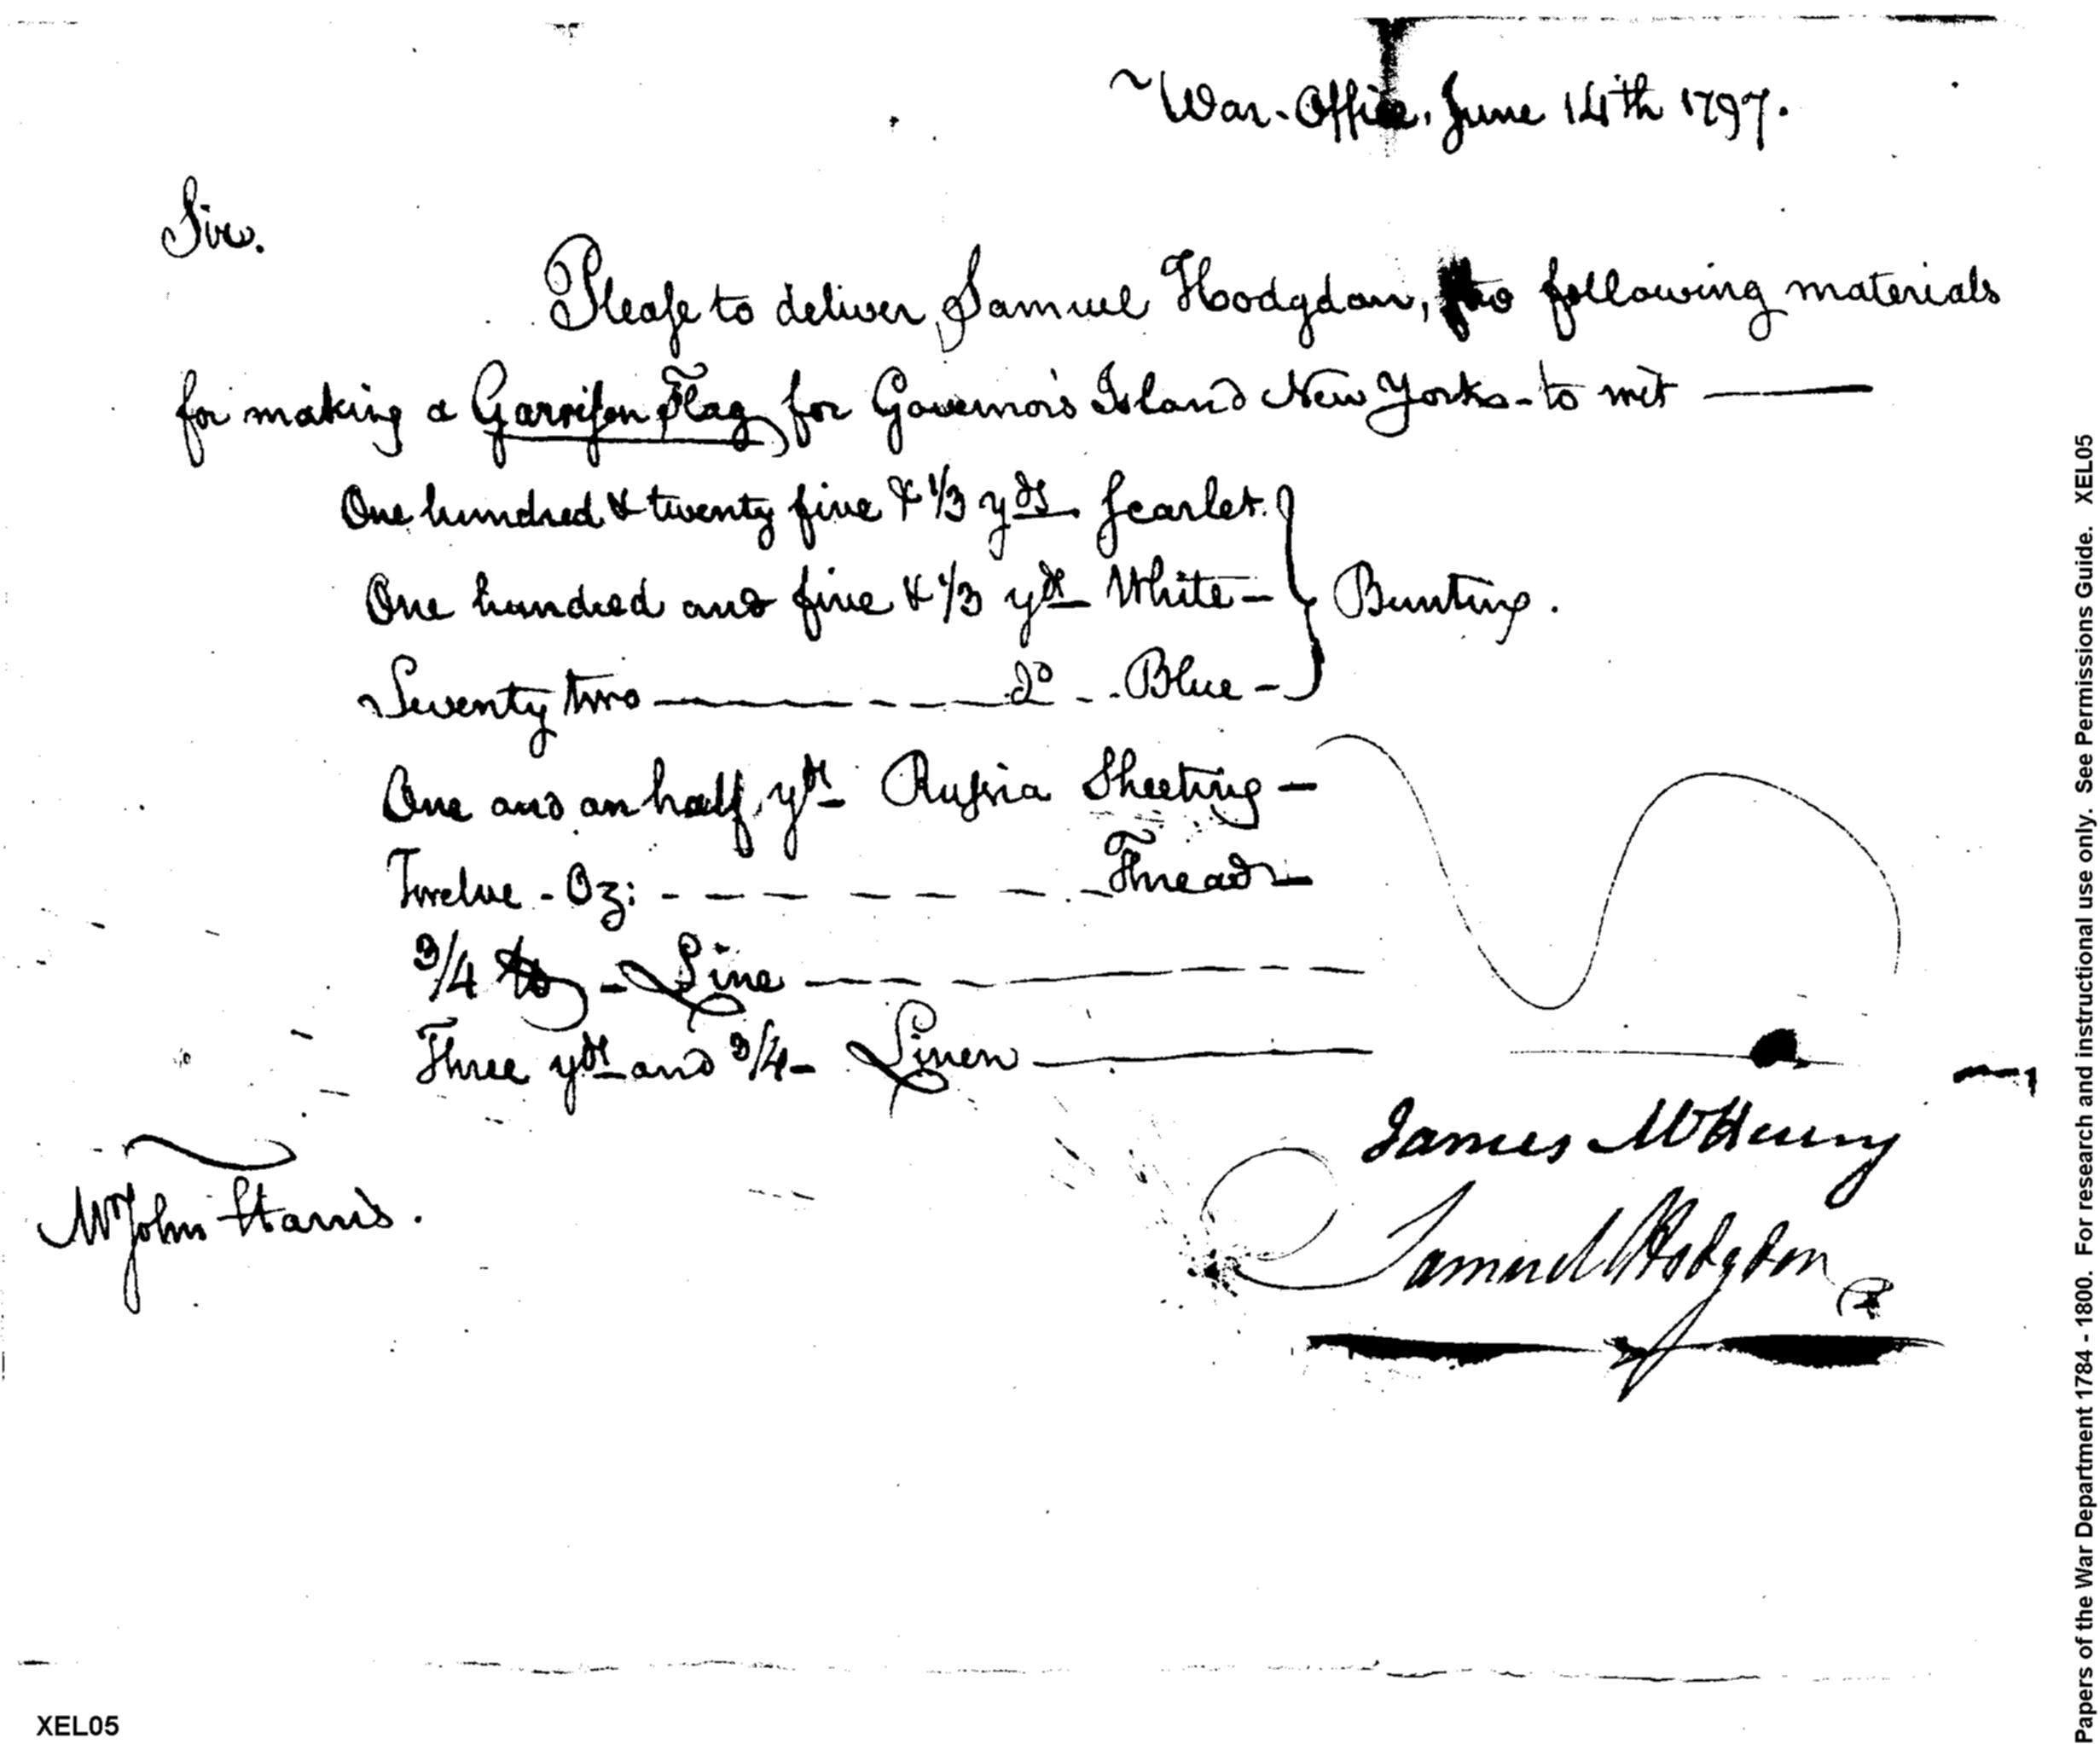 War-Office, June 14th 1797.
Sir.
Please to deliver Samuel Hodgdon, the following materials
for making a Garrison Flag for Governor's Island New York - to wit
One hundred & twenty five & 1/3 yds Scarlet.
One hundred and five & 1/3 yds White - Bunting.
Seventy two do Blue -
One and an half yds Russia Sheeting -
Twelve - Oz: Thread -
3/4 - Line
Three yds and 3/4 - Linen
James McHenry
Mr John Harris.
Samuel Hodgdon
XEL05
Papers of the War Department 1784 - 1800. For research and instructional use only. See Permissions Guide. XEL05